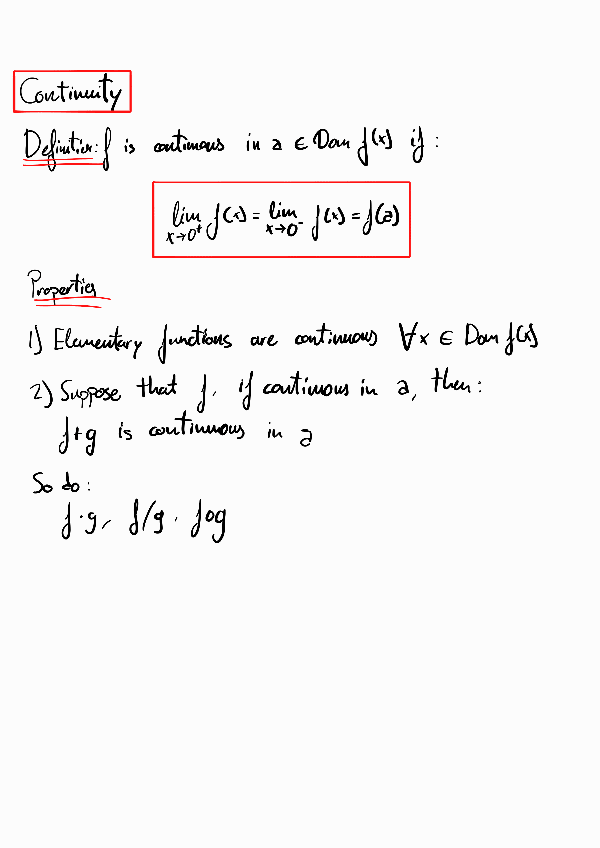 Continuity
Definition: f is continous in a ∈ Dom f(x) if :
lim x→0⁺ f(x) = lim x→0⁻ f(x) = f(a)
Properties
1) Elementary functions are continuous ∀x ∈ Dom f(x)
2) Suppose that f, if continous in a, then :
f+g is continuous in a
So do :
f·g, f/g, fog